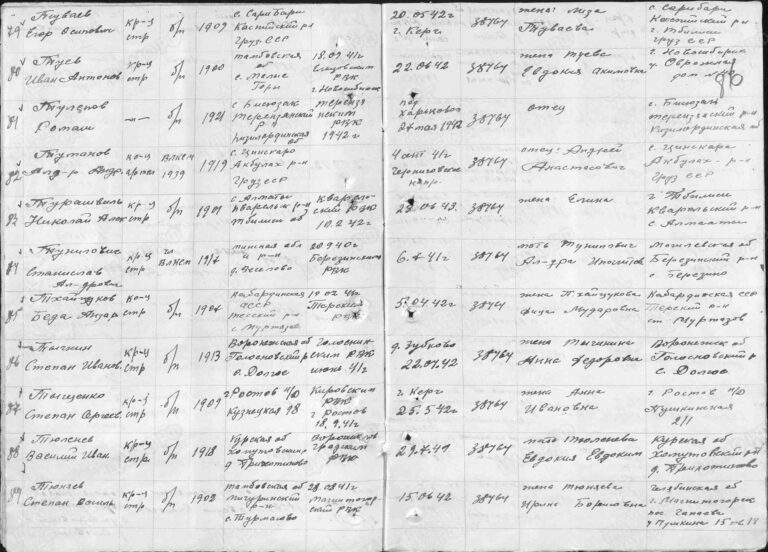 79 Туваев Егор Осипович кр-ц стр б/п 1909 с. Сари Бари Каспийский р-н Груз ССР 20.05.42г г. Керч 38764 жена: Лиза Туваева с. Сарибари Каспийский р-н г. Тбилиси Груз ССР
80 Туев Иван Антонов. кр-ц стр б/п 1900 Тамбовская об с. Малые Гори 18.09.41г РВК г. Новосибирск 22.06.42 38764 жена Туева Евдокия г. Новосибирск
81 Тулепов —"— б/п 1921 с. Бисюзак Терензякский р-н Кизилординская об РВК 1942г под Харьковом 27 мая 1942 38764 отец с. Бисюзак Терензякский р-н Кизилординская об
82 Туманов Ал-др Андр. кр-ц ВЛКСМ 1939 1919 с. Цинскаро Акбулах р-н Груз ССР 4 окт 41г Черниговское напр. 38764 отец: Андрей Анастасович с. Цинскаро Акбулах р-н Груз ССР
83 Турашвили Николай Алек кр-ц стр б/п 1901 с. Алматы Кварельск р-н Тбилиси об Кварельский РВК 10.2.42г 23.06.42. 38764 жена Елина г. Тбилиси Кварельский р-н с. Алматы
84 Тунилович Станислав Ал-дрович кр-ц стр чл. ВЛКСМ 1917 Минская обл р-н д. Веселово 20.9.40г Березинский РВК 6.7.41г 38764 мать Тунилович Ал-дра Могилевская об Березинский р-н с. Березино
85 Тхайцуков Беда Анзар кр-ц стр б/п 1904 Кабардинская АССР Терский р-н с. Муртазов 19.02.42г Терский РВК 5.04.42г 38764 жена Тхайцукова Фица Мударовна Кабардинская ССР Терский р-н ст. Муртазов
86 Тычин Степан Иванов. кр-ц стр б/п 1913 Воронежская об Голосновский р с. Долгое Голоснинским РВК июнь 41г д. Зубково 22.07.42 38764 жена Тычинина Анна Федоровна Воронежск об Голосновский р с. Долгое
87 Тыщенко Степан Сергеев. кр-ц стр б/п 1909 г Ростов н/Д Кузнецкая 98 Кировским РВК г Ростов 18.9.41г г. Керч 25.5.42г 38764 жена Анна Ивановна г. Ростов н/Д Пушкинская 211
88 Тюленев Василий Иван. кр-ц стр. б/п 1918 Курская об Хомутовский д. Прилотилово РВК 29.7.41 38764 мать Тюленева Евдокия Евдоким Курская об Хомутовский р-н д. Прилотилово
89 Тюняев Степан Василь. кр-ц стр б/п 1902 Тамбовская об Мичуринский р-н с. Турмасово 28.0841г Магнитогорский РВК 15.06.42 38764 жена Тюняева Ирина Борисовна Челябинская об г. Магнитогорск пос ул Пушкина 15